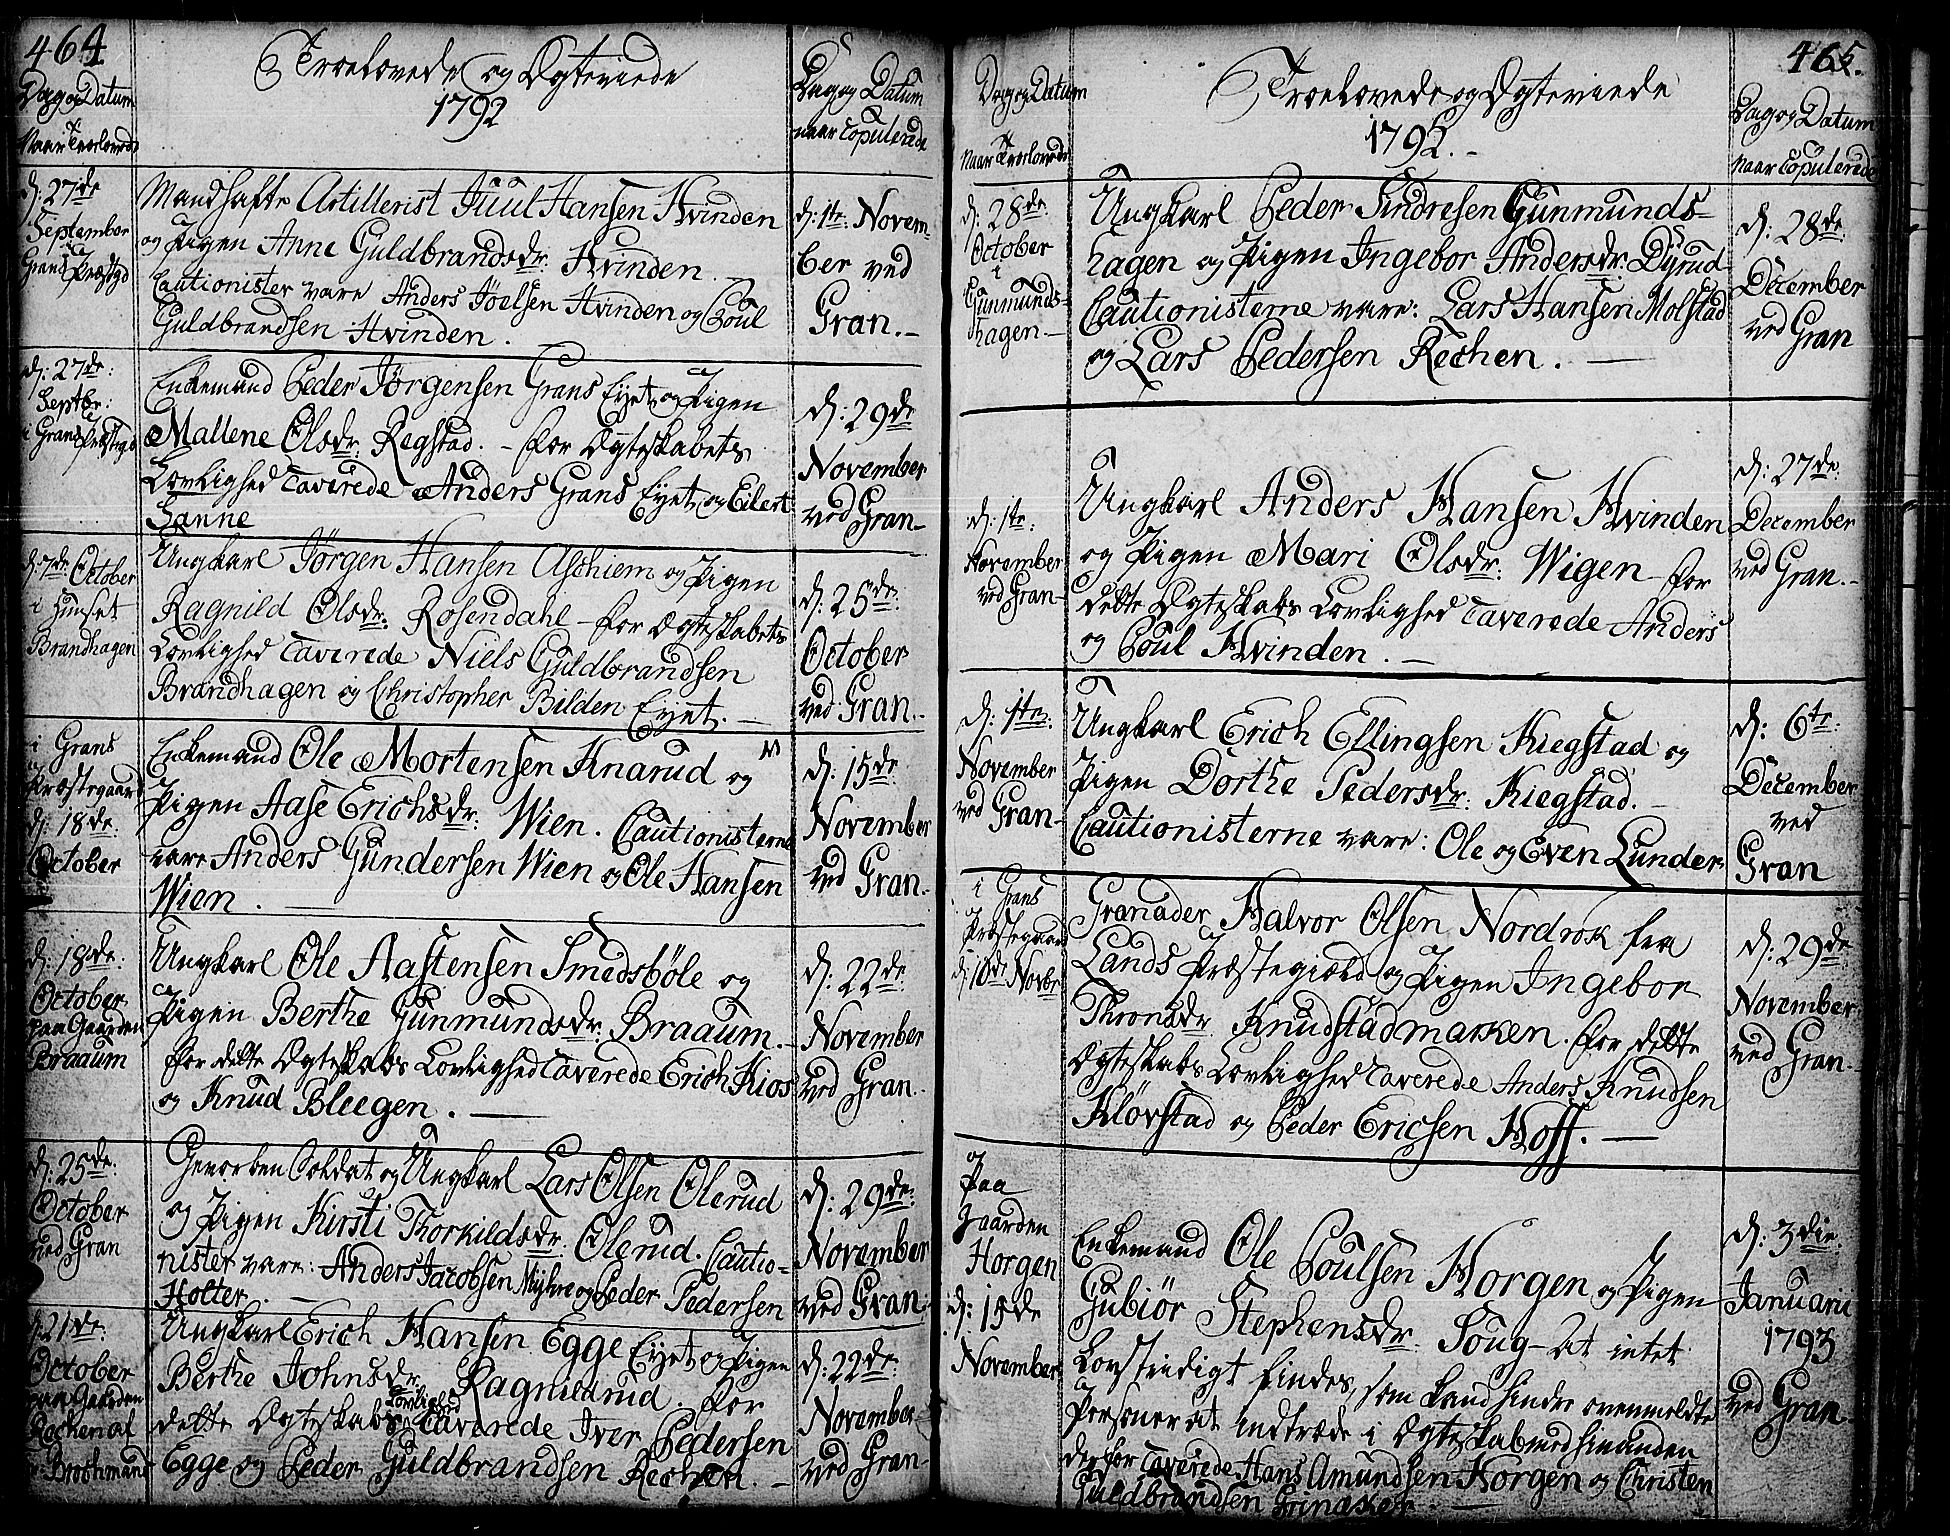 464
Troelovede og Ægteviede
1792
Dag og Datum
naar Troelovede
Dag og Datum
naar Copulerede
d: 27de
September
i
Grans Præstgd
Mandhafte Artillerist Juul Hansen Hvinden
og Pigen Anne Guldbrandsdr. Hvinden. —
Cautionister vare Anders Joelsen Hvinden og Poul
Guldbrandsen Hvinden.
d: 1te: Novem-
ber ved
Gran. —
d: 27de:
Septbr:
i Grans Præstgd
Enkemand Peder Jørgensen Grans Eyet og Pigen
Mallene Olsdr. Regstad. — for Ægteskabets
Lovlighed Caverede Anders Grans Eyet og Eilert
Sanne
d: 29de
November
ved Gran —
d: 7de October
i Hunset
Brandhagen
Ungkarl Jørgen Hansen Aschiem og Pigen
Ragnild Olsdr. Rosendahl — for Ægteskabets
Lovlighed Caverede Niels Guldbrandsen
Brandhagen og Christopher Bilden Eyet. —
d: 25de:
October
ved Gran. -
i Grans
Præstegaard
d: 18de:
October
Enkemand Ole Mortensen Knarud og
Pigen Aase Erichsdr. Wien. Cautionisterne
vare Anders Gundersen Wien og Ole Hansen
Wien. —
d: 15de
November
ved Gran.
d: 18de:
October
paa Gaarden
Braaum
Ungkarl Ole Aastensen Smedsbøle og
Pigen Berthe Gunmundsdr. Braaum. —
for dette Ægteskabs Lovlighed Caverede Erich Kios
og Knud Bleegen. —
d: 22de:
November
ved Gran.
d: 25de:
October
ved Gran
Geworben Soldat og Ungkarl Lars Olsen Olerud
og Pigen Kirsti Thorkildsdr. Olerud. Cautio-
nister vare: Anders Jacobsen Myhre og Peder Pedersen
Holter. —
d: 29de:
November
ved Gran.
d: 21de:
October
paa Gaarden
Rechen af
Hr. Brochmand
Ungkarl Erich Hansen Egge Eyet og Pigen
Berthe Johnsdr. Ragnildrud. for
dette Ægteskabs Lovlighed Caverede Iver Pedersen
Egge og Peder Guldbrandsen Rechen. —
d: 22de:
November
ved Gran —
465.
Troelovede og Ægteviede
1792. -
Dag og Datum
naar Troelovede
Dag og Datum
naar Copulerede
d: 28de:
October
i
Gunmunds-
hagen. —
Ungkarl Peder Sindresen Gunmunds-
hagen og Pigen Ingebor Andersdr. Dyrud
Cautionisterne vare: Lars Hansen Molstad
og Lars Pedersen Rechen. —
d: 28de:
December
ved Gran
d: 1te:
November
ved Gran —
Ungkarl Anders Hansen Hvinden
og Pigen Mari Olsdr. Wigen — for
dette Ægteskabs Lovlighed Caverede Anders
og Poul Hvinden. —
d: 27de.
December
ved Gran. -
d: 1te.
November
ved Gran —
Ungkarl Erich Ellingsen Kiegstad og
Pigen Dorthe Pedersdr. Kiegstad. —
Cautionisterne vare: Ole og Even Lunder
d: 6te:
December
ved
Gran
i Grans
Præstegaard
d: 10de Novbr
Granader Halvor Olsen Nordrok fra
Lands Præstegield og Pigen Ingebor
Thronsdr Knudstadmarken. for dette
Ægteskabs Lovlighed Caverede Anders Knudsen
Kløvstad og Peder Ericsen Hoff. —
d: 29de
November
ved Gran. -
Paa
Gaarden
Horgen
d: 15de
November
Enkemand Ole Poulsen Horgen og Pigen
Gubiør Stephensdr. Soug — At intet
Lovstridigt findes, som kand hindre ovenmeldte
Personer at indtræde i Ægteskab med hinanden
derfor Caverede Hans Amundsen Horgen og Christen
Guldbrandsen Grinaker. —
d: 3die:
Januarii
1793
ved Gran.